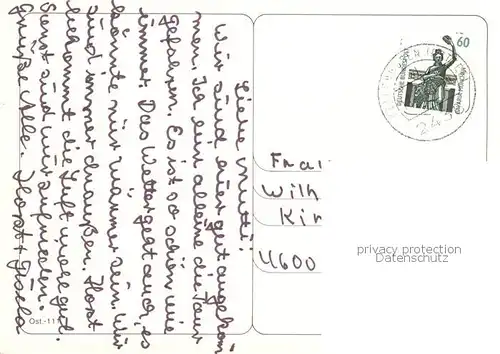 Liebe Mutti!
Wir sind hier gut angekom-
men. Ich bin alleine die Tour
gefahren. Es ist so schön wie
immer. Das Wetter geht auch, es
könnte nur wärmer sein. Wir
sind immer draußen. Horst
bekommt die Luft wohl gut.
Sonst sind wir zufrieden.
Grüße Alle. Horst + Gisela
Ost.-111
60
Wilh
Kir
4600
privacy protection
Datenschutz